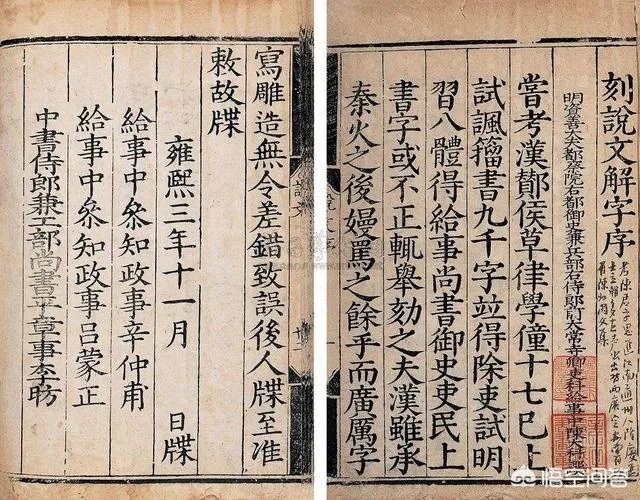 刻說文解字序
明資善大夫都察院右都御史兼兵部右侍郎前太常寺卿吏科給事中陳大科譔
嘗考漢酇侯草律學僮十七已上
試諷籀書九千字竝得除吏試明
習八體得給事尚書御史吏民上
書字或不正輒舉劾之夫漢雖承
秦火之後嫚罵之餘乎而廣厲字
說文
寫雕造無令差錯致誤後人牒至准
敕故牒
雍熙三年十一月 日牒
給事中叅知政事辛仲甫
給事中叅知政事呂蒙正
中書侍郎兼工部尚書平章事李昉
悟空问答